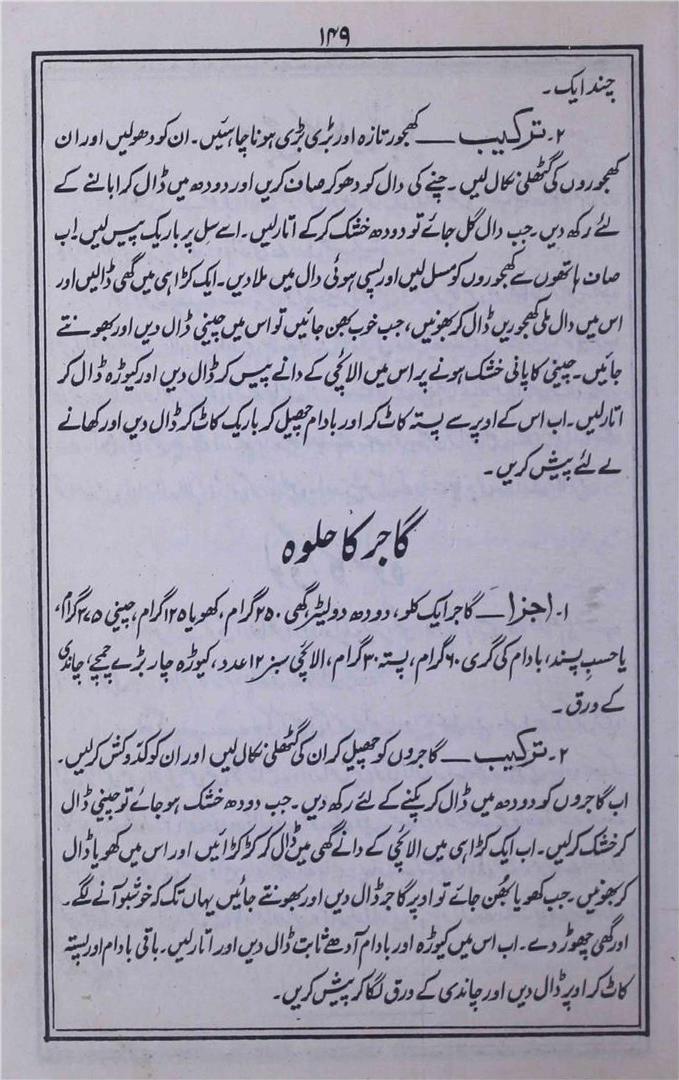 ۱۴۹
چند ایک۔
۲۔ ترکیب — کھجور تازہ اور بڑی بڑی ہونا چاہئیں۔ ان کو دھولیں اور ان
کھجوروں کی گٹھلی نکال لیں۔ چنے کی دال کو دھو کر صاف کریں اور دودھ میں ڈال کر ابالنے کے
لئے رکھ دیں۔ جب دال گل جائے تو دودھ خشک کر کے اتارلیں۔ اسے سل پر باریک پیس لیں۔ اب
صاف ہاتھوں سے کھجوروں کو مسل لیں اور پسی ہوئی دال میں ملا دیں۔ ایک کڑاہی میں گھی ڈالیں اور
اس میں دال ملی کھجوریں ڈال کر بھونیں، جب خوب بھن جائیں تو اس میں چینی ڈال دیں اور بھونتے
جائیں۔ چینی کا پانی خشک ہونے پر اس میں الائچی کے دانے پیس کر ڈال دیں اور کیوڑہ ڈال کر
اتارلیں۔ اب اس کے اوپر سے پستہ کاٹ کر اور بادام چھیل کر باریک کاٹ کر ڈال دیں اور کھانے
کے لئے پیش کریں۔
گاجر کا حلوہ
۱۔ اجزا — گاجر ایک کلو، دودھ دو لیٹر، گھی ۲۵۰ گرام، کھویا ۱۲۵ گرام، چینی ۲۷۵ گرام،
یا حسبِ پسند، بادام کی گری ۶۰ گرام، پستہ ۳۰ گرام، الائچی سبز ۱۲ عدد، کیوڑہ چار بڑے چمچے، چاندی
کے ورق۔
۲۔ ترکیب — گاجروں کو چھیل کر ان کی گٹھلی نکال لیں اور ان کو کدوکش کرلیں۔
اب گاجروں کو دودھ میں ڈال کر پکنے کے لئے رکھ دیں۔ جب دودھ خشک ہو جائے تو چینی ڈال
کر خشک کرلیں۔ اب ایک کڑاہی میں الائچی کے دانے گھی میں ڈال کر کڑکڑائیں اور اس میں کھویا ڈال
کر بھونیں۔ جب کھویا بھُن جائے تو اوپر گاجر ڈال دیں اور بھونتے جائیں یہاں تک کہ خوشبو آنے لگے۔
اور گھی چھوڑ دے۔ اب اس میں کیوڑہ اور بادام آدھے ثابت ڈال دیں اور اتارلیں۔ باقی بادام اور پستہ
کاٹ کر اوپر ڈال دیں اور چاندی کے ورق لگا کر پیش کریں۔